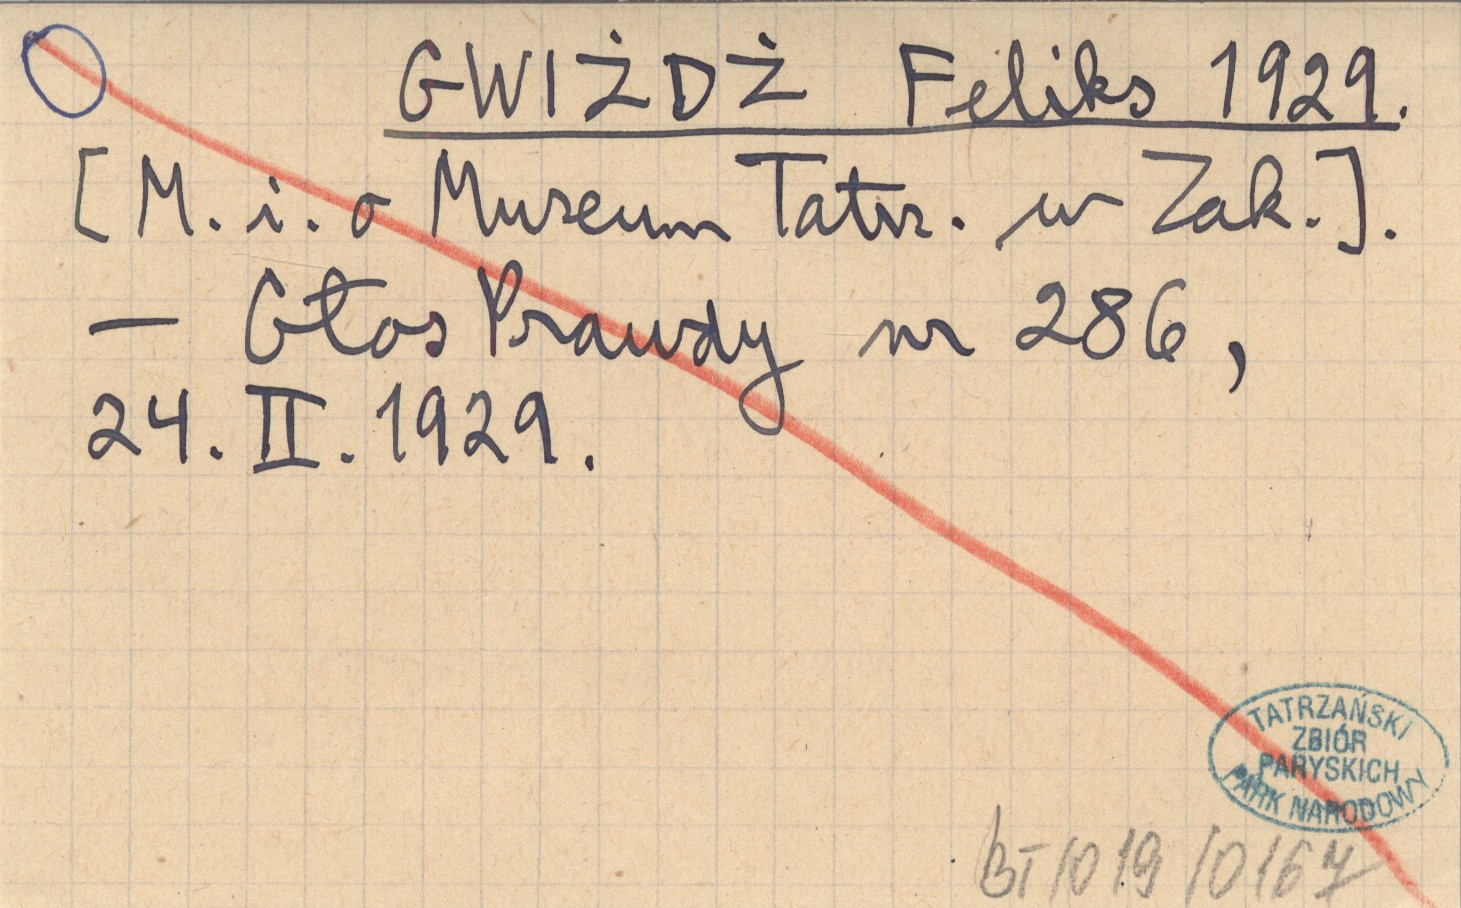 GWIŻDŻ Feliks 1929.
[M. i. o Muzeum Tatrz. w Zak.].
— Głos Prawdy nr 286,
24. II. 1929.
TATRZAŃSKI
ZBIÓR
PARYSKICH
PARK NARODOWY
BT/019/0167